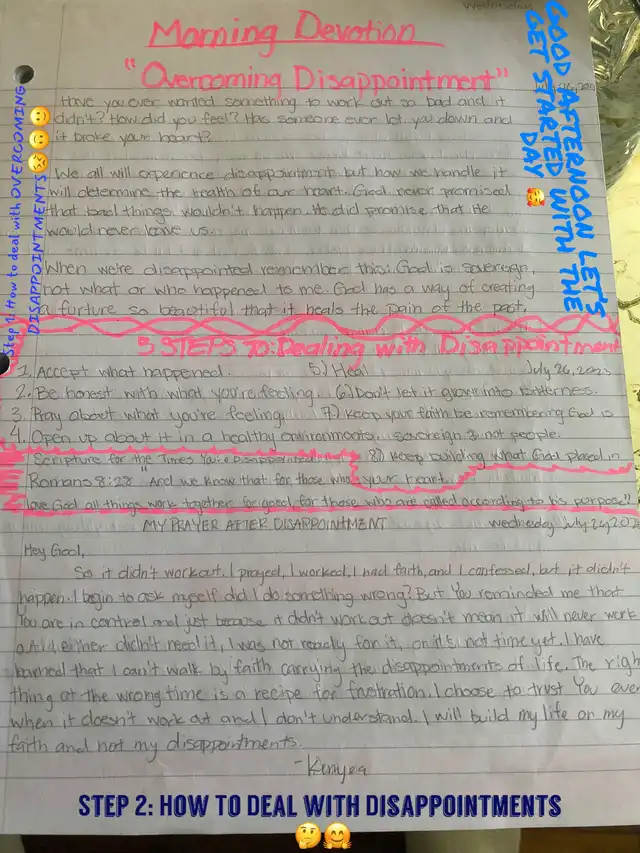 Wednesday
Morning Devotion
"Overcoming Disappointment"
GOOD AFTERNOON LET'S
GET STARTED WITH THE
DAY 🥰
Step 1: How to deal with OVERCOMING
DISAPPOINTMENTS
Have you ever wanted something to work out so bad and it
didn't? How did you feel? Has someone ever let you down and
it broke your heart?
We all will experience disappointment but how we handle it
will determine the health of our heart. God never promised
that bad things wouldn't happen. He did promise that He
would never leave us.
When we're disappointed remember this: God is sovereign,
not what or who happened to me. God has a way of creating
a furture so beautiful that it heals the pain of the past.
5 STEPS TO: Dealing with Disappointment
1. Accept what happened. 5) Heal July 26, 2023
2. Be honest with what you're feeling. 6) Don't let it grow into bitterness.
3. Pray about what you're feeling. 7) Keep your faith be remembering God is
4. Open up about it in a healthy environments. sovereign & not people.
Scripture for the Times You're Disappointed 8) Keep building what God placed in
Romans 8:28 "And we know that for those who your heart.
love God all things work together for good for those who are called according to his purpose"
MY PRAYER AFTER DISAPPOINTMENT Wednesday July 26, 202
Hey God,
So it didn't workout. I prayed, I worked, I had faith, and I confessed, but it didn't
happen. I begin to ask myself did I do something wrong? But You reminded me that
You are in control and just because it didn't work out doesn't mean it will never work
I either didn't need it, I was not ready for it, or it's not time yet. I have
learned that I can't walk by faith carrying the disappointments of life. The righ
thing at the wrong time is a recipe for frustration. I choose to trust You even
when it doesn't work out and I don't understand. I will build my life on my
faith and not my disappointments.
-Kenyea
STEP 2: HOW TO DEAL WITH DISAPPOINTMENTS
🤔🤗